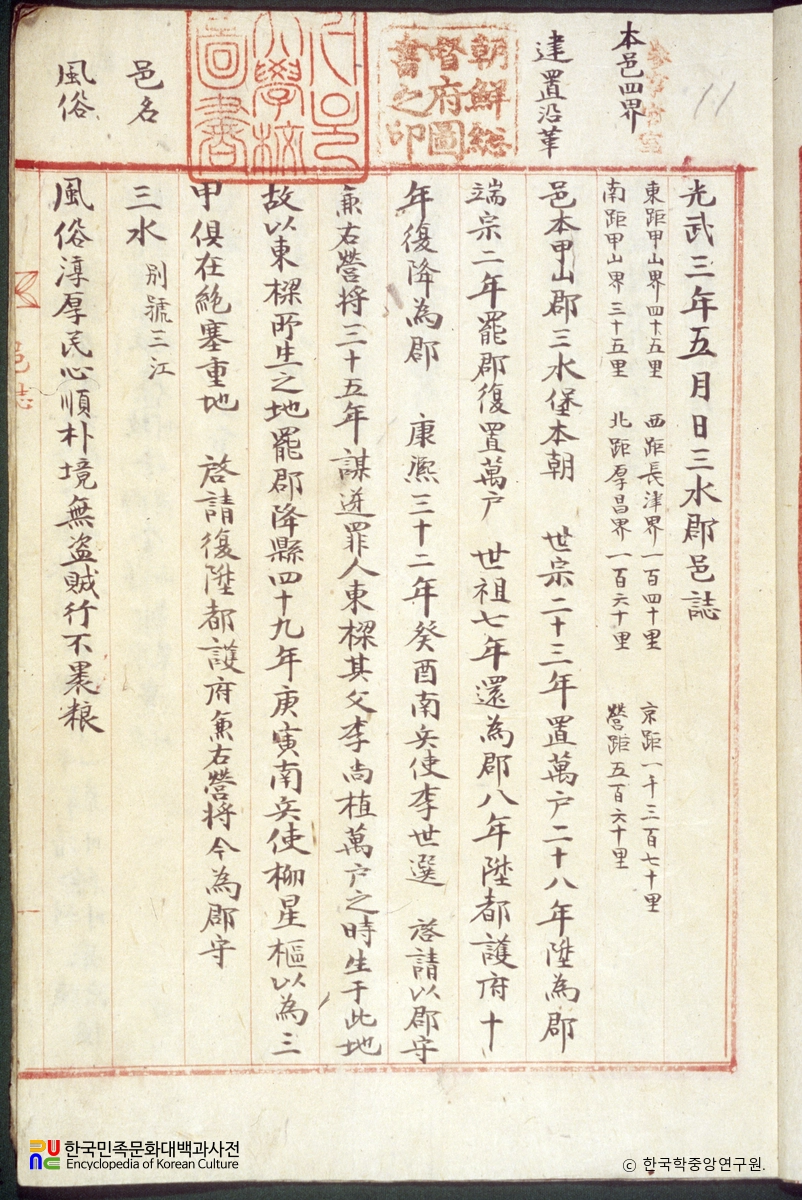 11
光武三年五月日三水郡邑誌
本邑四界
東距甲山界四十五里 西距長津界一百四十里 京距一千三百七十里
南距甲山界三十五里 北距厚昌界一百六十里 營距五百六十里
建置沿革
邑本甲山郡三水堡本朝 世宗二十三年置萬户二十八年陞為郡
端宗二年罷郡復置萬户 世祖七年還為郡八年陞都護府十
年復降為郡 康熙三十二年癸酉南兵使李世選 啓請以郡守
兼右營將三十五年謀逆罪人東樑其父李尚植萬户之時生于此地
故以東樑所生之地罷郡降縣四十九年庚寅南兵使柳星樞以為三
甲俱在絶塞重地 啓請復陞都護府兼右營將今為郡守
邑名
三水 別號三江
風俗
風俗淳厚民心順朴境無盗賊行不裹粮
邑誌
朝鮮総
督府圖
書之印
大學校
圖書
한국민족문화대백과사전
Encyclopedia of Korean Culture
© 한국학중앙연구원.